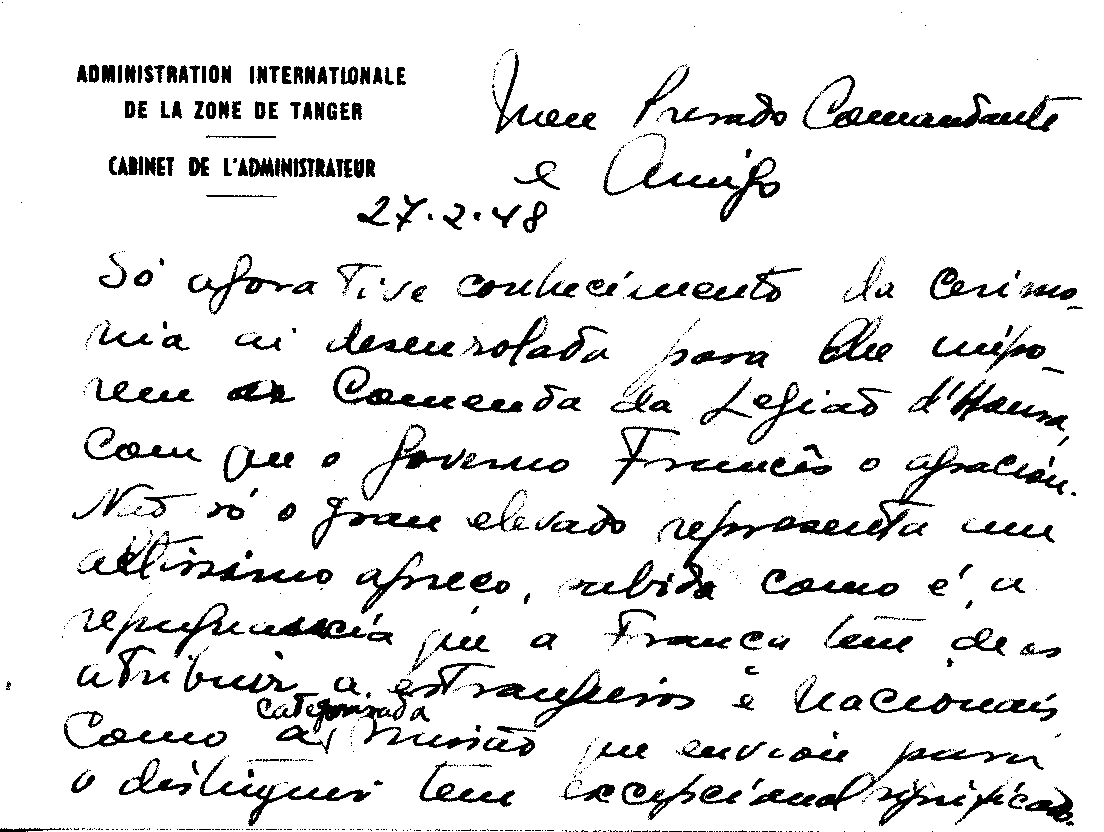 ADMINISTRATION INTERNATIONALE
DE LA ZONE DE TANGER
CABINET DE L'ADMINISTRATEUR
Meu Prezado Comandante
e Amigo
27.2.48
Só agora tive conhecimento da cerimo-
nia aí desenrolada para lhe impo-
rem a Comenda da Legião d'Honra,
com que o Governo Francês o agraciou.
Não só o grau elevado representa um
altissimo apreço, sabida como é, a
repugnancia que a França tem de as
atribuir a estrangeiros e nacionais
como a categorisada missão que enviou para
o distinguir tem excepcional significado.